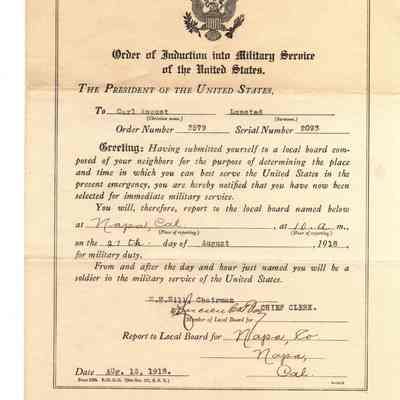 Order of Induction into Military Service
of the United States.
THE PRESIDENT OF THE UNITED STATES,
To Carl August Lunsted
(Christian name.) (Surname.)
Order Number 3579 Serial Number 2093
Greeting: Having submitted yourself to a local board com-
posed of your neighbors for the purpose of determining the place
and time in which you can best serve the United States in
the present emergency, you are hereby notified that you have now been
selected for immediate military service.
You will, therefore, report to the local board named below
at Napa, Cal , at 10 a. m.,
(Place of reporting.) (Hour of reporting.)
on the 27th day of August , 1918 ,
for military duty.
From and after the day and hour just named you will be a
soldier in the military service of the United States.
Chairman
CHIEF CLERK.
Member of Local Board for
Report to Local Board for Napa, Co
Napa,
Date Aug. 12, 1918. Cal.